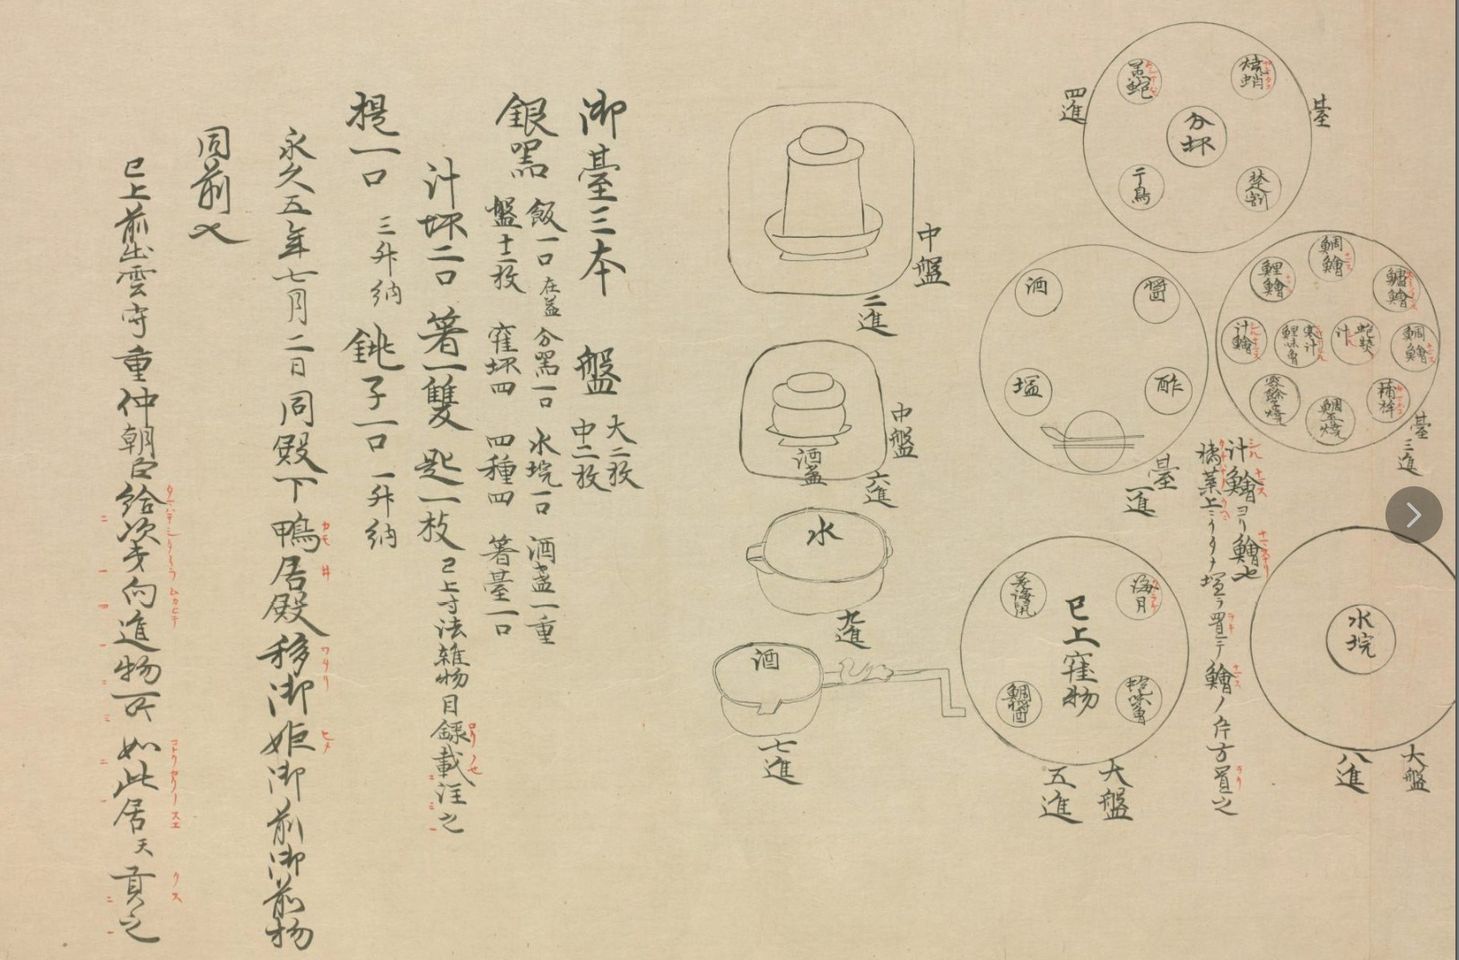 臺
四進
焼蛸
分坏
干鳥
楚割
鯛鱠
鯉鱠
鯛鱠
汁鱠
寒汁
鯉味曽
汁
臺
三進
汁鱠ヨリ鱠也
置之
大盤
八進
水垸
醤
酒
酢
塩
臺
一進
海月
已上窪物
鯛醤
大盤
五進
中盤
二進
中盤
六進
酒盞
水
九進
酒
七進
御臺三本
盤
大二枚
中二枚
銀器
飯一口
在盖
分器一口
水垸一口
酒盞一重
盤十二枚
窪坏四
四種四
箸臺一口
汁坏二口
箸一雙
匙一枚
已上寸法雑物目録載注之
提一口
三升納
銚子一口
一升納
永久五年七月二日同殿下鴨居殿移御姫御前御前物
同前也
已上前出雲守重仲朝臣給次第向進物所如此居天貢之